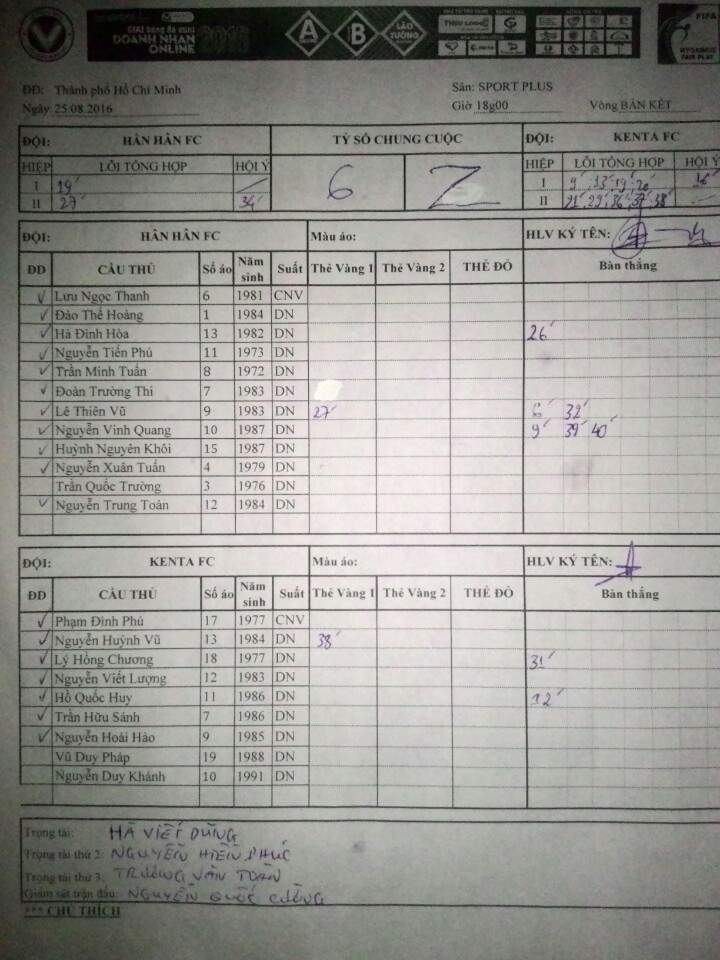 GIẢI bóng đá mini
DOANH NHÂN
ONLINE 2016
A B LÃO TƯỚNG
FIFA
FAIR PLAY
ĐĐ: Thành phố Hồ Chí Minh Sân: SPORT PLUS
Ngày 25.08.2016 Giờ 18g00 Vòng BÁN KẾT
ĐỘI: HÂN HÂN FC TỶ SỐ CHUNG CUỘC ĐỘI: KENTA FC
HIỆP LỖI TỔNG HỢP HỘI Ý 6 2 HIỆP LỖI TỔNG HỢP HỘI Ý
I 19' I 9' 13' 19' 20' 16'
II 27' 34' II 21' 29' 36' 37' 38'
ĐỘI: HÂN HÂN FC Màu áo: HLV KÝ TÊN:
DD CẦU THỦ Số áo Năm sinh Suất Thẻ Vàng 1 Thẻ Vàng 2 THẺ ĐỎ Bàn thắng
Lưu Ngọc Thanh 6 1981 CNV
Đào Thế Hoàng 1 1984 DN
Hà Đình Hòa 13 1982 DN 26'
Nguyễn Tiến Phú 11 1973 DN
Trần Minh Tuấn 8 1972 DN
Đoàn Trường Thi 7 1983 DN
Lê Thiên Vũ 9 1983 DN 27' 6' 32'
Nguyễn Vinh Quang 10 1987 DN 9' 39' 40'
Huỳnh Nguyên Khôi 15 1987 DN
Nguyễn Xuân Tuấn 4 1979 DN
Trần Quốc Trường 3 1976 DN
Nguyễn Trung Toàn 12 1984 DN
ĐỘI: KENTA FC Màu áo: HLV KÝ TÊN:
DD CẦU THỦ Số áo Năm sinh Suất Thẻ Vàng 1 Thẻ Vàng 2 THẺ ĐỎ Bàn thắng
Phạm Đình Phú 17 1977 CNV
Nguyễn Huỳnh Vũ 13 1984 DN 38'
Lý Hồng Chương 18 1977 DN 31'
Nguyễn Viết Lượng 12 1983 DN
Hồ Quốc Huy 11 1986 DN 12'
Trần Hữu Sánh 7 1986 DN
Nguyễn Hoài Hào 9 1985 DN
Vũ Duy Pháp 19 1988 DN
Nguyễn Duy Khánh 10 1991 DN
Trọng tài: HÀ VIẾT DŨNG
Trọng tài thứ 2: NGUYỄN HIỀN PHÚC
Trọng tài thứ 3: TRƯƠNG VĂN TOÀN
Giám sát trận đấu: NGUYỄN QUỐC CƯỜNG
*** CHÚ THÍCH